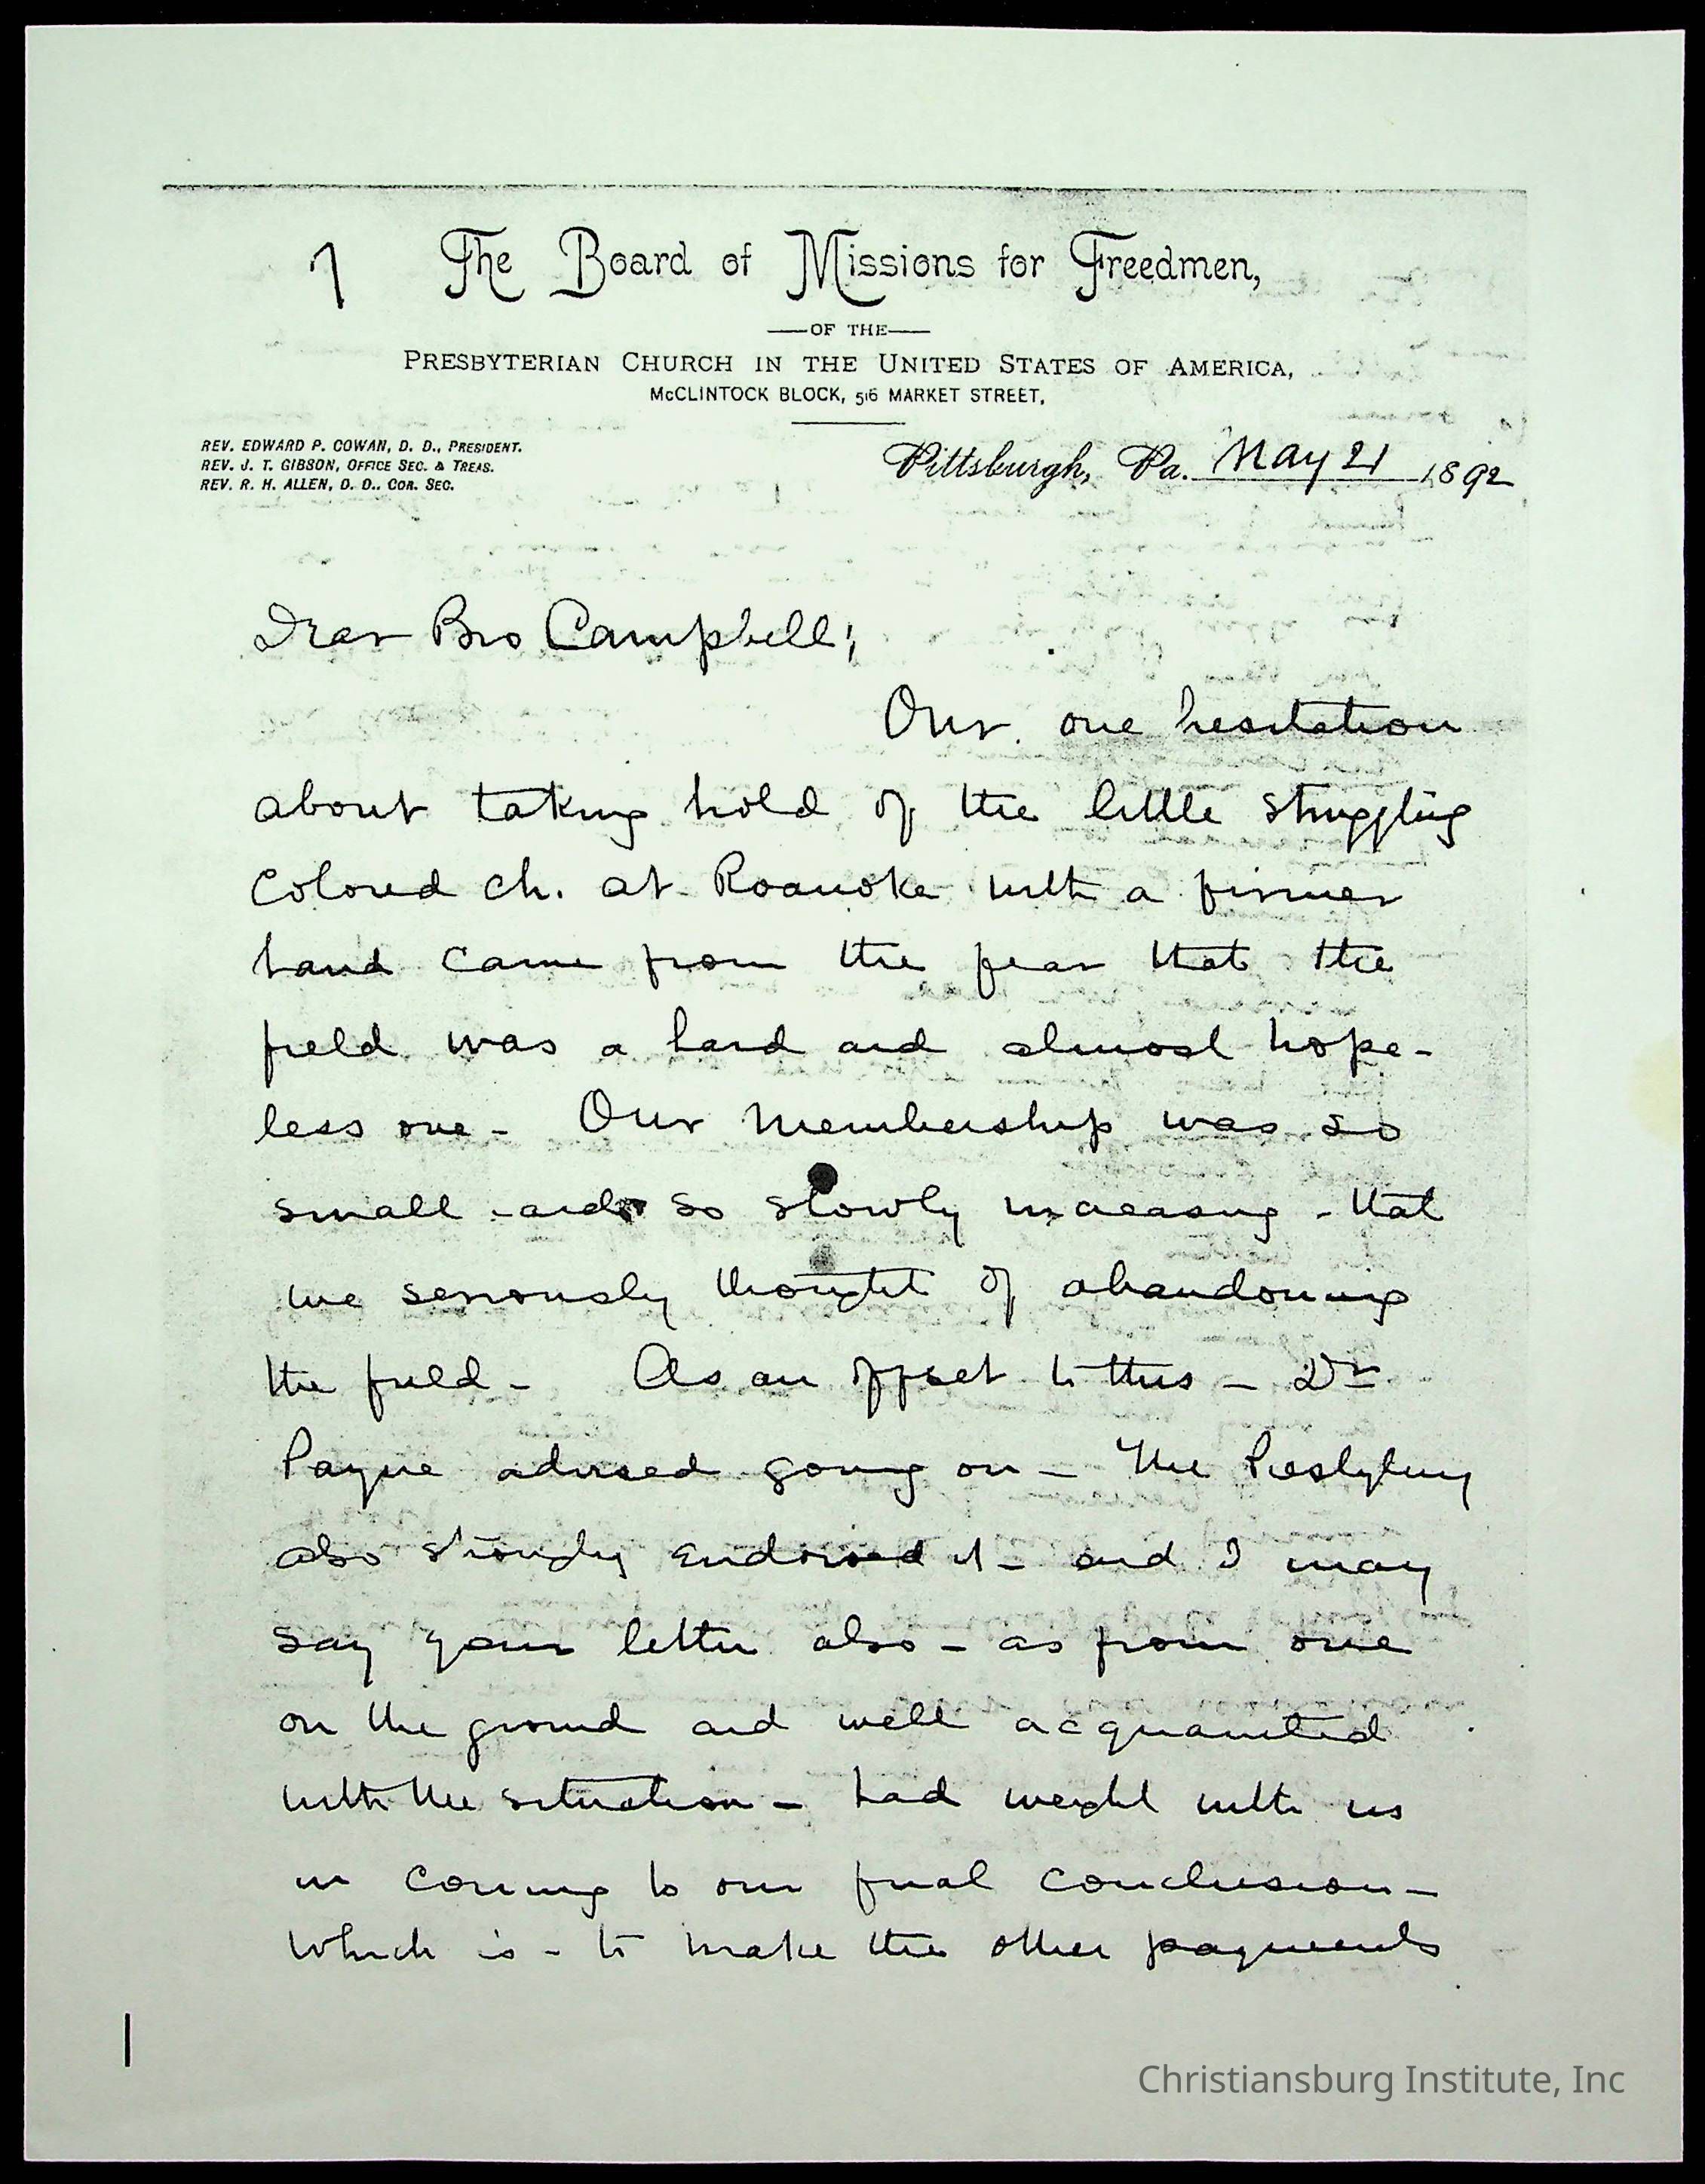 1 The Board of Missions for Freedmen,
OF THE
PRESBYTERIAN CHURCH IN THE UNITED STATES OF AMERICA,
McCLINTOCK BLOCK, 516 MARKET STREET,
REV. EDWARD P. COWAN, D. D., PRESIDENT.
REV. J. T. GIBSON, OFFICE SEC. & TREAS.
REV. R. H. ALLEN, D. D., COR. SEC.
Pittsburgh, Pa. May 21 1892
Dear Bro Campbell;
Our one hesitation
about taking hold of the little struggling
Colored ch. at Roanoke with a firmer
hand came from the fear that the
field was a hard and almost hope-
less one - Our membership was so
small - and so slowly increasing - that
we seriously thought of abandoning
the field - As an offset to this - Dr
Payne advised going on - The Presbytery
also strongly endorsed it - and I may
say your letter also - as from one
on the ground and well acquainted
with the situation - had weight with us
in coming to our final conclusion -
which is - to make the other payments
Christiansburg Institute, Inc